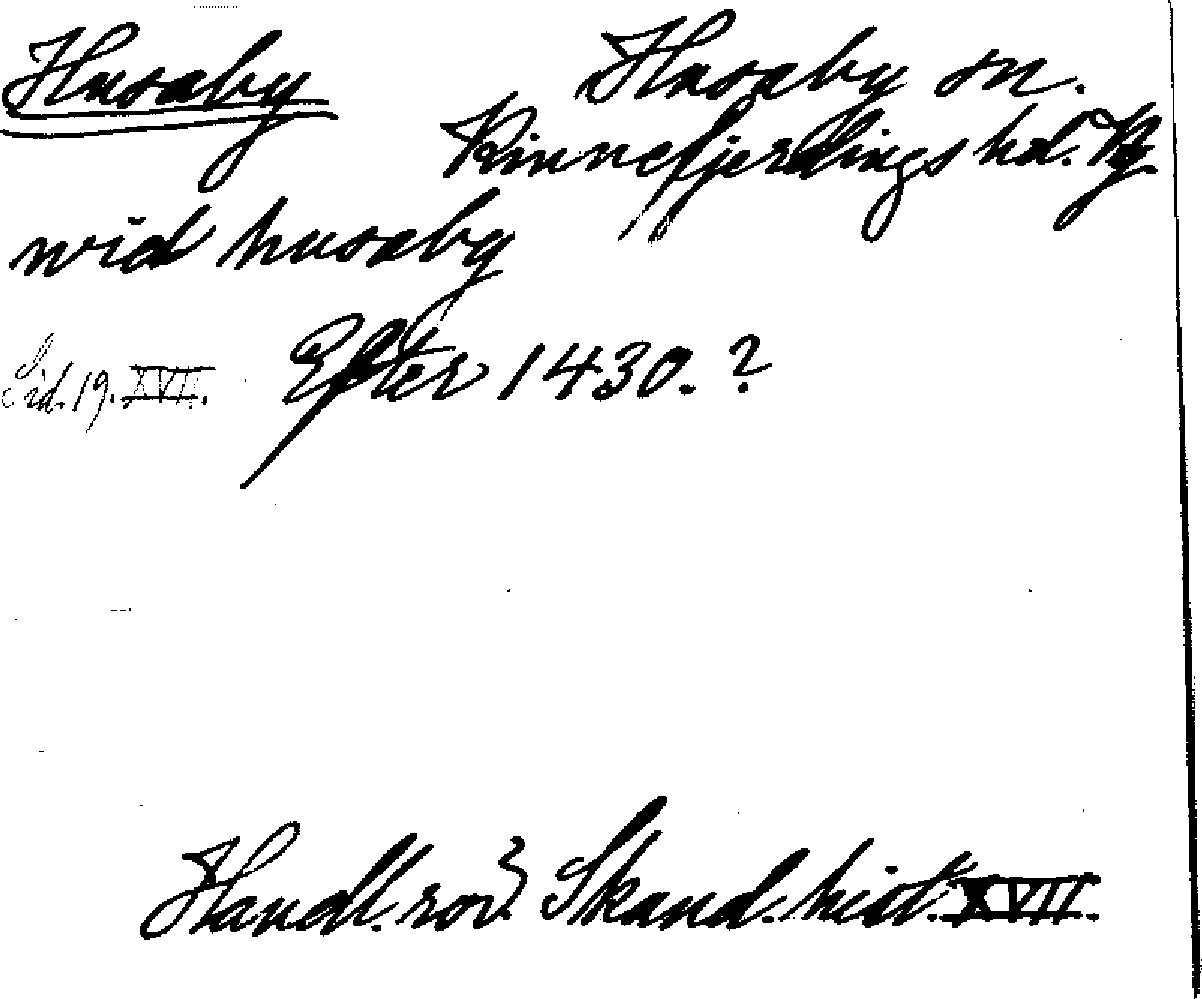 Husaby
Husaby sn.
Kinnefjerdings hd. Vg.
wid husaby
Sid. 19. XVII. Efter 1430. ?
Handl. rör. Skand. hist. XVII.